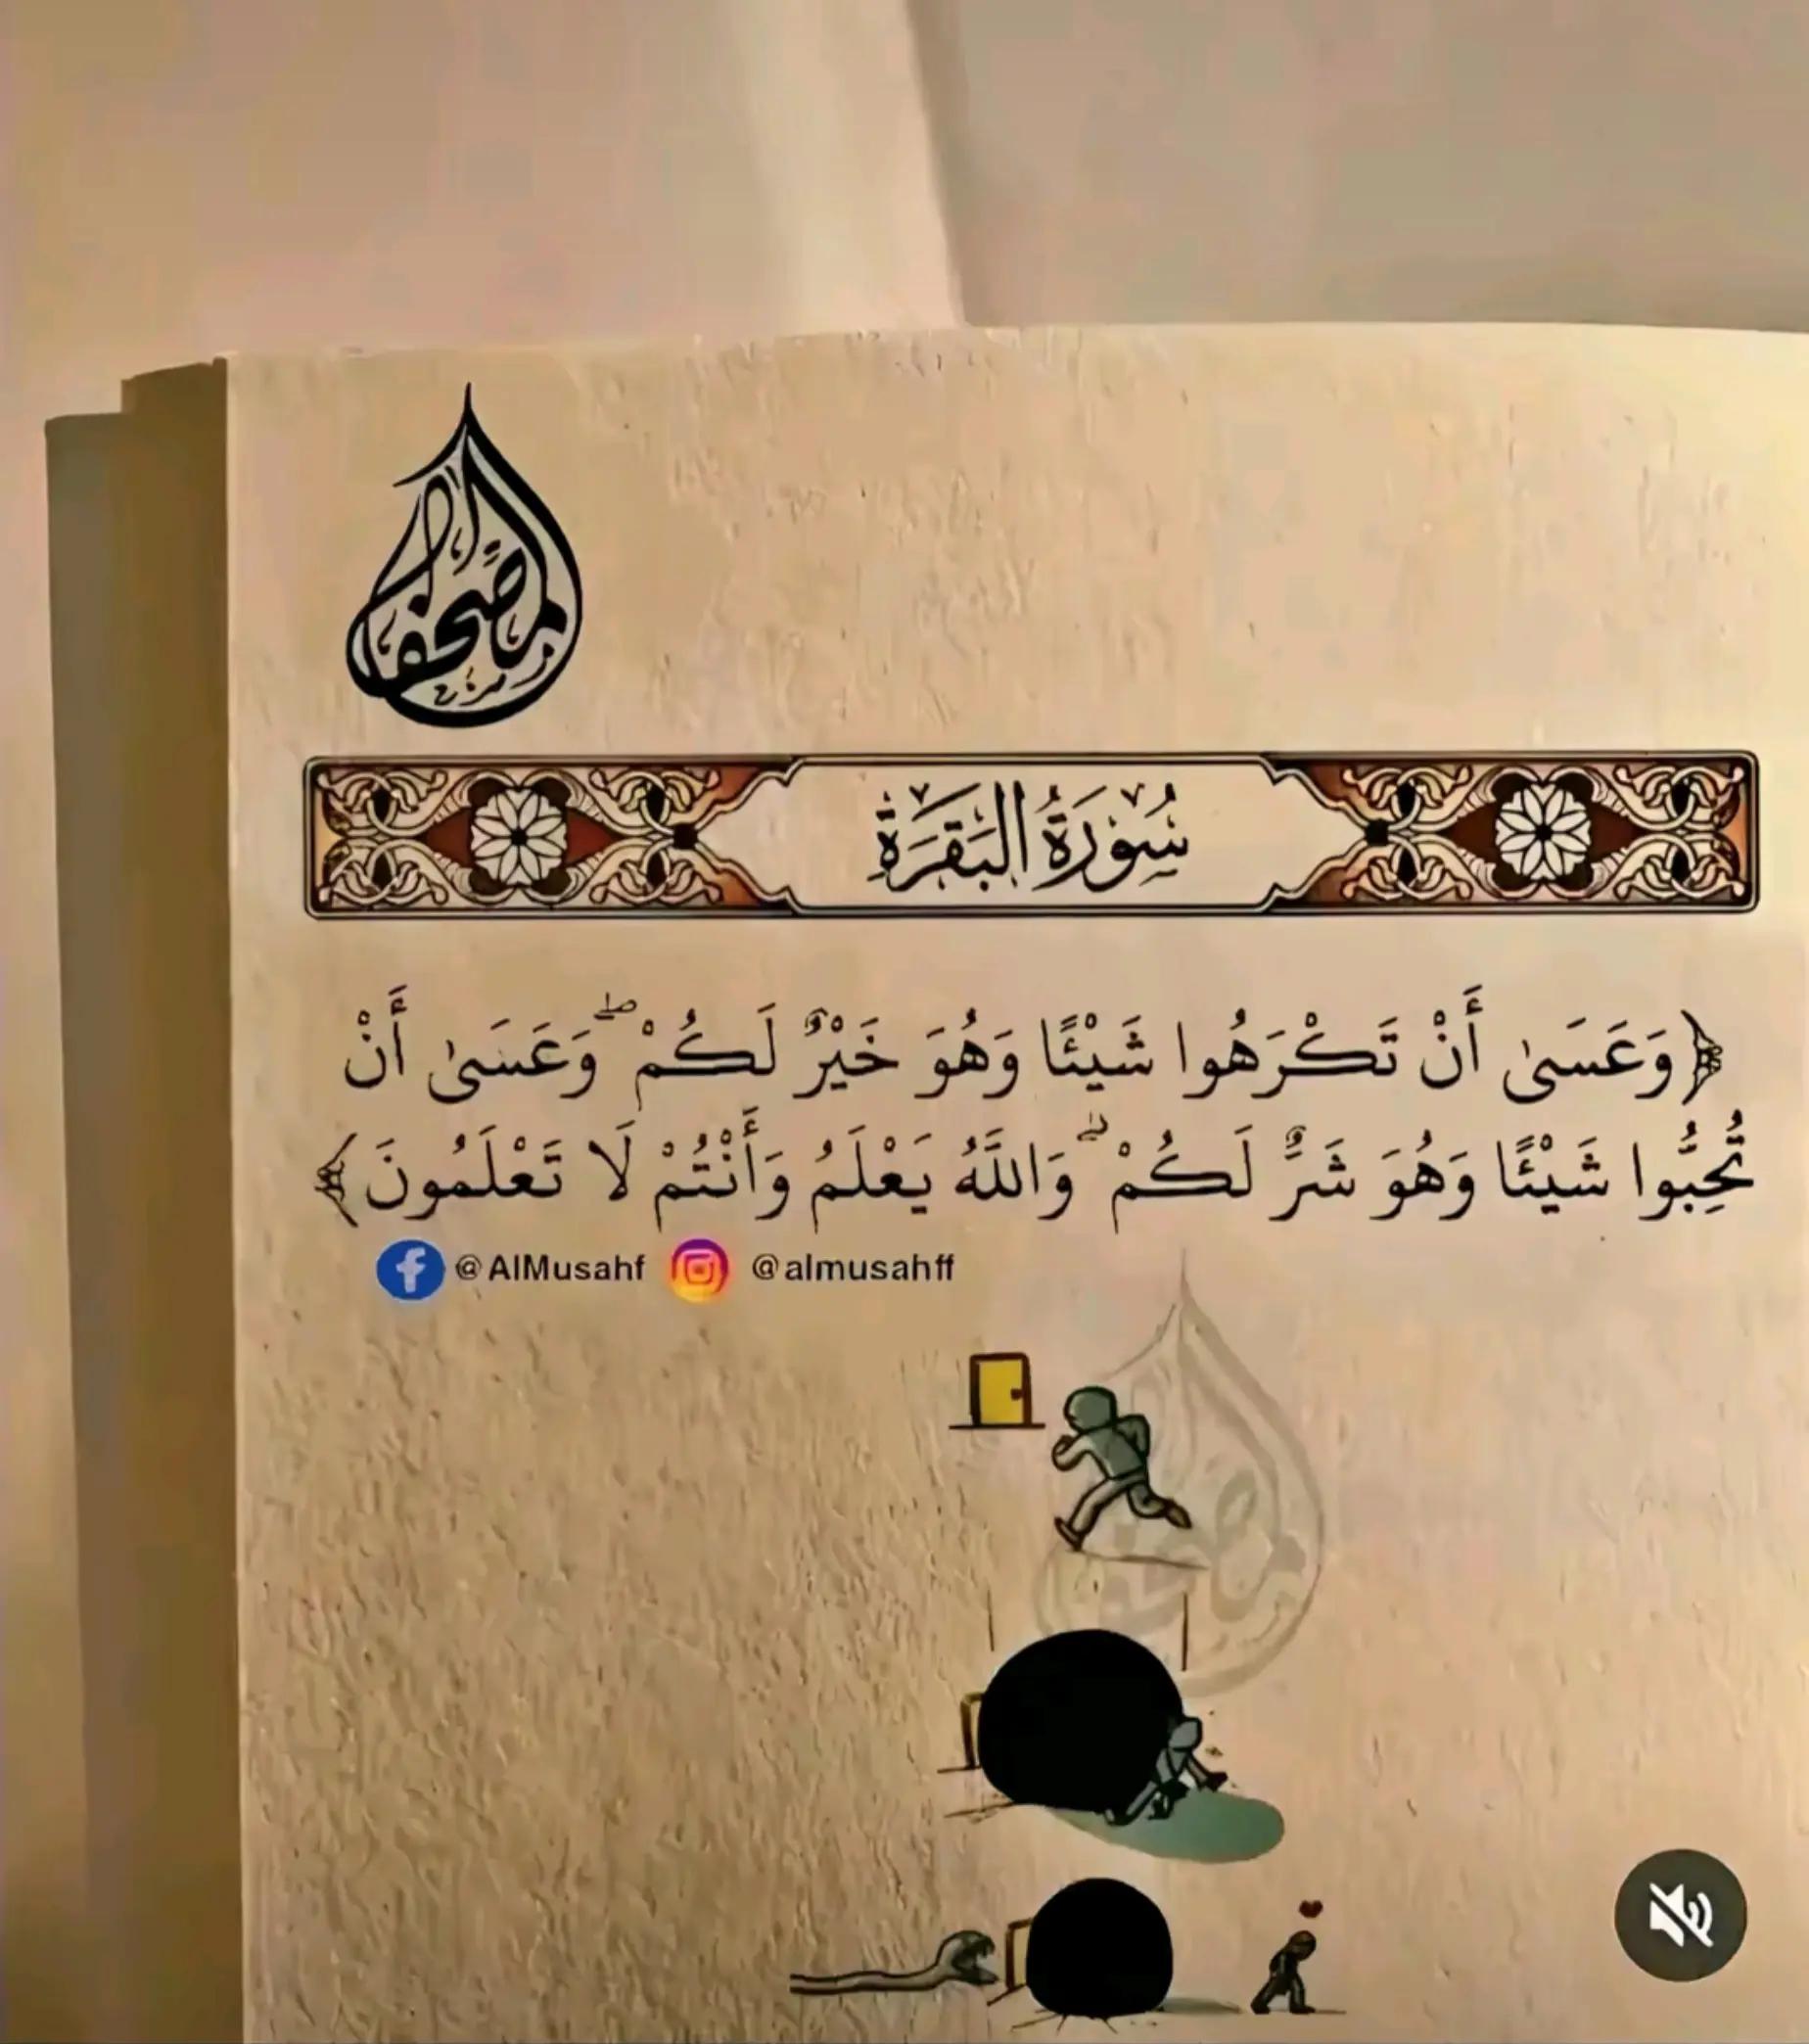 المصحف
سُورَةُ البَقَرَةِ
﴿وَعَسَىٰ أَنْ تَكْرَهُوا شَيْئًا وَهُوَ خَيْرٌ لَكُمْ ۖ وَعَسَىٰ أَنْ
تُحِبُّوا شَيْئًا وَهُوَ شَرٌّ لَكُمْ ۗ وَاللَّهُ يَعْلَمُ وَأَنْتُمْ لَا تَعْلَمُونَ﴾
@AlMusahf @almusahff
المصحف